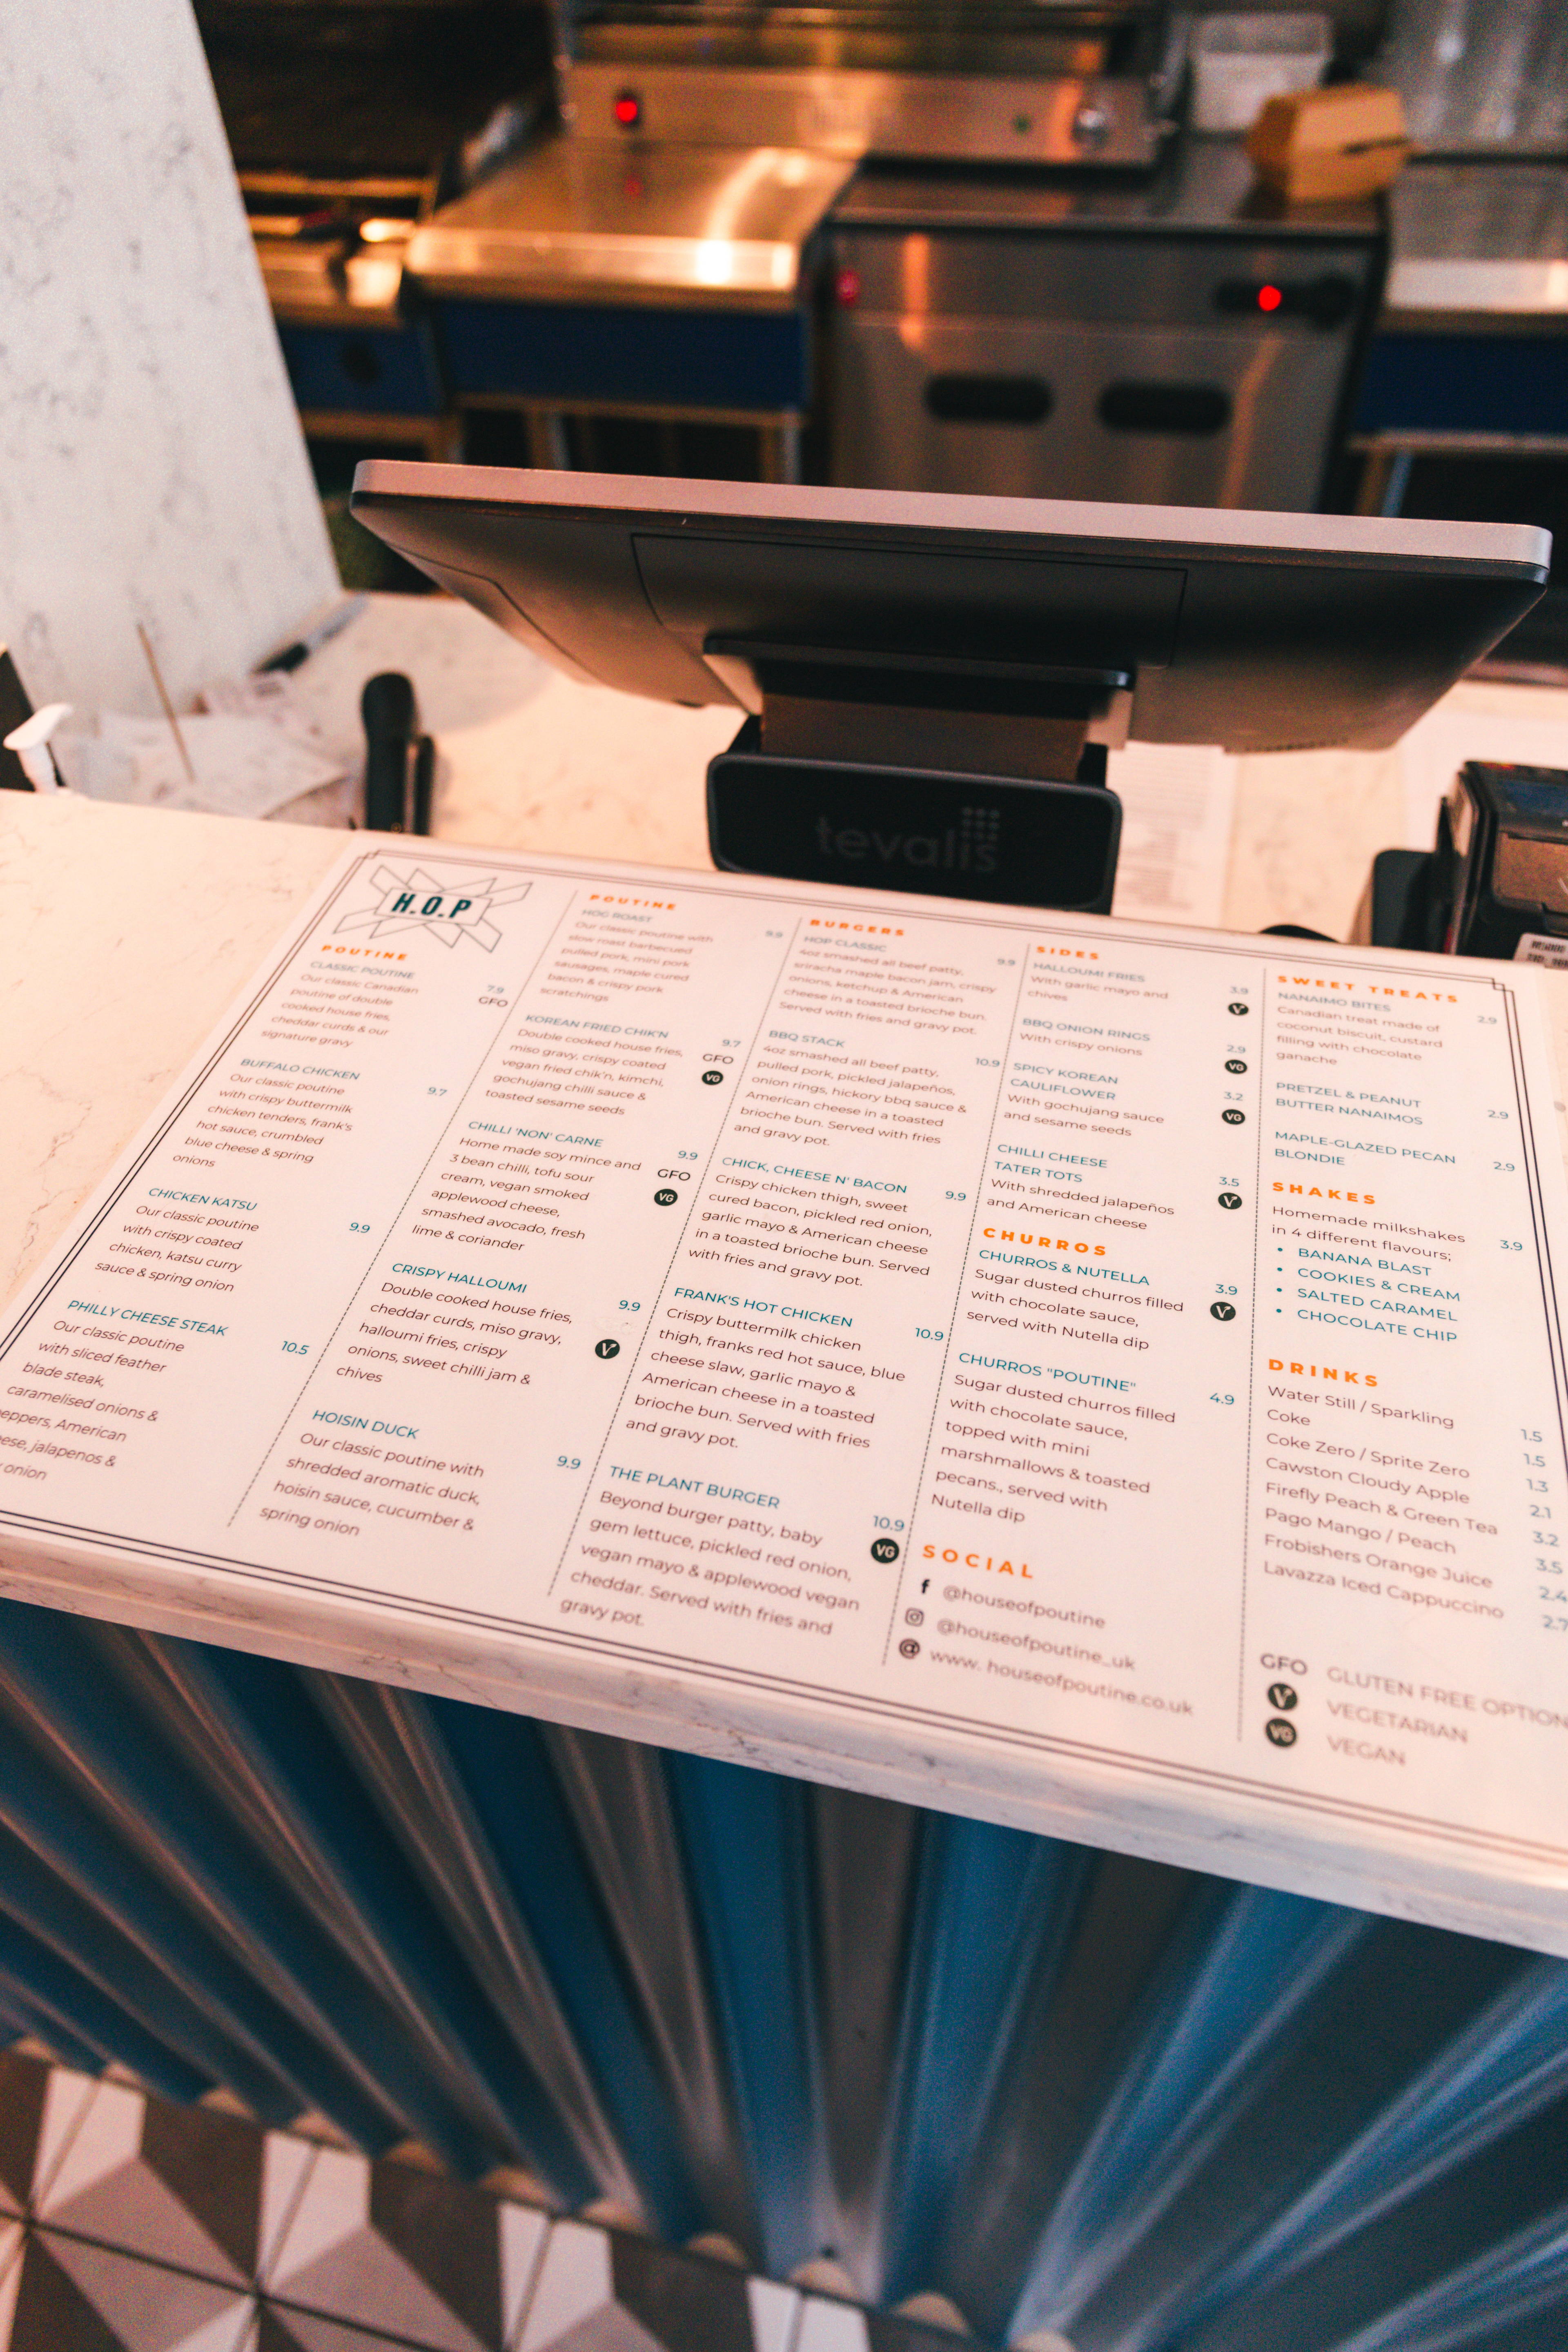 tevalis
H.O.P
POUTINE
CLASSIC POUTINE
7.9
Our classic Canadian
GFO
poutine of double
cooked house fries,
cheddar curds & our
signature gravy
BUFFALO CHICKEN
9.7
Our classic poutine
with crispy buttermilk
chicken tenders, frank's
hot sauce, crumbled
blue cheese & spring
onions
CHICKEN KATSU
9.9
Our classic poutine
with crispy coated
chicken, katsu curry
sauce & spring onion
PHILLY CHEESE STEAK
10.5
Our classic poutine
with sliced feather
blade steak,
caramelised onions &
eppers, American
ese, jalapenos &
onion
POUTINE
HOG ROAST
9.9
Our classic poutine with
slow roast barbecued
pulled pork, mini pork
sausages, maple cured
bacon & crispy pork
scratchings
KOREAN FRIED CHIK'N
9.7
Double cooked house fries,
GFO
miso gravy, crispy coated
VG
vegan fried chik'n, kimchi,
gochujang chilli sauce &
toasted sesame seeds
CHILLI 'NON' CARNE
9.9
Home made soy mince and
GFO
3 bean chilli, tofu sour
VG
cream, vegan smoked
applewood cheese,
smashed avocado, fresh
lime & coriander
CRISPY HALLOUMI
9.9
Double cooked house fries,
V
cheddar curds, miso gravy,
halloumi fries, crispy
onions, sweet chilli jam &
chives
HOISIN DUCK
9.9
Our classic poutine with
shredded aromatic duck,
hoisin sauce, cucumber &
spring onion
BURGERS
HOP CLASSIC
9.9
4oz smashed all beef patty,
sriracha maple bacon jam, crispy
onions, ketchup & American
cheese in a toasted brioche bun.
Served with fries and gravy pot.
BBQ STACK
10.9
4oz smashed all beef patty,
pulled pork, pickled jalapeños,
onion rings, hickory bbq sauce &
American cheese in a toasted
brioche bun. Served with fries
and gravy pot.
CHICK, CHEESE N' BACON
9.9
Crispy chicken thigh, sweet
cured bacon, pickled red onion,
garlic mayo & American cheese
in a toasted brioche bun. Served
with fries and gravy pot.
FRANK'S HOT CHICKEN
10.9
Crispy buttermilk chicken
thigh, franks red hot sauce, blue
cheese slaw, garlic mayo &
American cheese in a toasted
brioche bun. Served with fries
and gravy pot.
THE PLANT BURGER
10.9
Beyond burger patty, baby
VG
gem lettuce, pickled red onion,
vegan mayo & applewood vegan
cheddar. Served with fries and
gravy pot.
SIDES
HALLOUMI FRIES
3.9
With garlic mayo and
V
chives
BBQ ONION RINGS
2.9
With crispy onions
VG
SPICY KOREAN
CAULIFLOWER
3.2
With gochujang sauce
VG
and sesame seeds
CHILLI CHEESE
TATER TOTS
3.5
With shredded jalapeños
V
and American cheese
CHURROS
CHURROS & NUTELLA
3.9
Sugar dusted churros filled
V
with chocolate sauce,
served with Nutella dip
CHURROS "POUTINE"
4.9
Sugar dusted churros filled
with chocolate sauce,
topped with mini
marshmallows & toasted
pecans., served with
Nutella dip
SOCIAL
f @houseofpoutine
@houseofpoutine_uk
@ www. houseofpoutine.co.uk
SWEET TREATS
NANAIMO BITES
2.9
Canadian treat made of
coconut biscuit, custard
filling with chocolate
ganache
PRETZEL & PEANUT
BUTTER NANAIMOS
2.9
MAPLE-GLAZED PECAN
BLONDIE
2.9
SHAKES
Homemade milkshakes
in 4 different flavours;
3.9
• BANANA BLAST
• COOKIES & CREAM
• SALTED CARAMEL
• CHOCOLATE CHIP
DRINKS
Water Still / Sparkling 1.5
Coke 1.5
Coke Zero / Sprite Zero 1.3
Cawston Cloudy Apple 2.1
Firefly Peach & Green Tea 3.2
Pago Mango / Peach 3.5
Frobishers Orange Juice 2.4
Lavazza Iced Cappuccino 2.7
GFO GLUTEN FREE OPTION
V VEGETARIAN
VG VEGAN